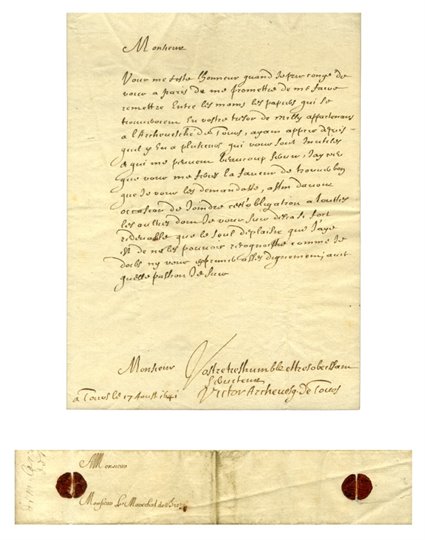 Monsieur
Vous me feste l'honneur quand Je pris congé de
vous a paris de me promettre de me faire
remettre Entre les mains les papiers qui se
trouveroient En vostre tresor de Milly appartenans
a l'Archevesché de Tours, ayant appris depuis
quil y En a plusieurs qui vous sont Inutiles
& qui me peuvent beaucoup servir,
que vous me feres la faveur de trouver bon
que Je vous les demandasse, affin davoir
occasion de Joindre cest obligation a touttes
les aultres dont Je vous suis desia si fort
redevable que le seul desplaisir que J'aye
est de ne les pouvoir recognoistre comme Je
dois ny vous asses dignement,
quelle passion Je suis
Monsieur
Vostre tres humble et tres obeissant
Serviteur
Victor Archevesq. De Tours
à Tours le 17 Aoust 1641
A Monsieur
Monsieur Le Mareschal de